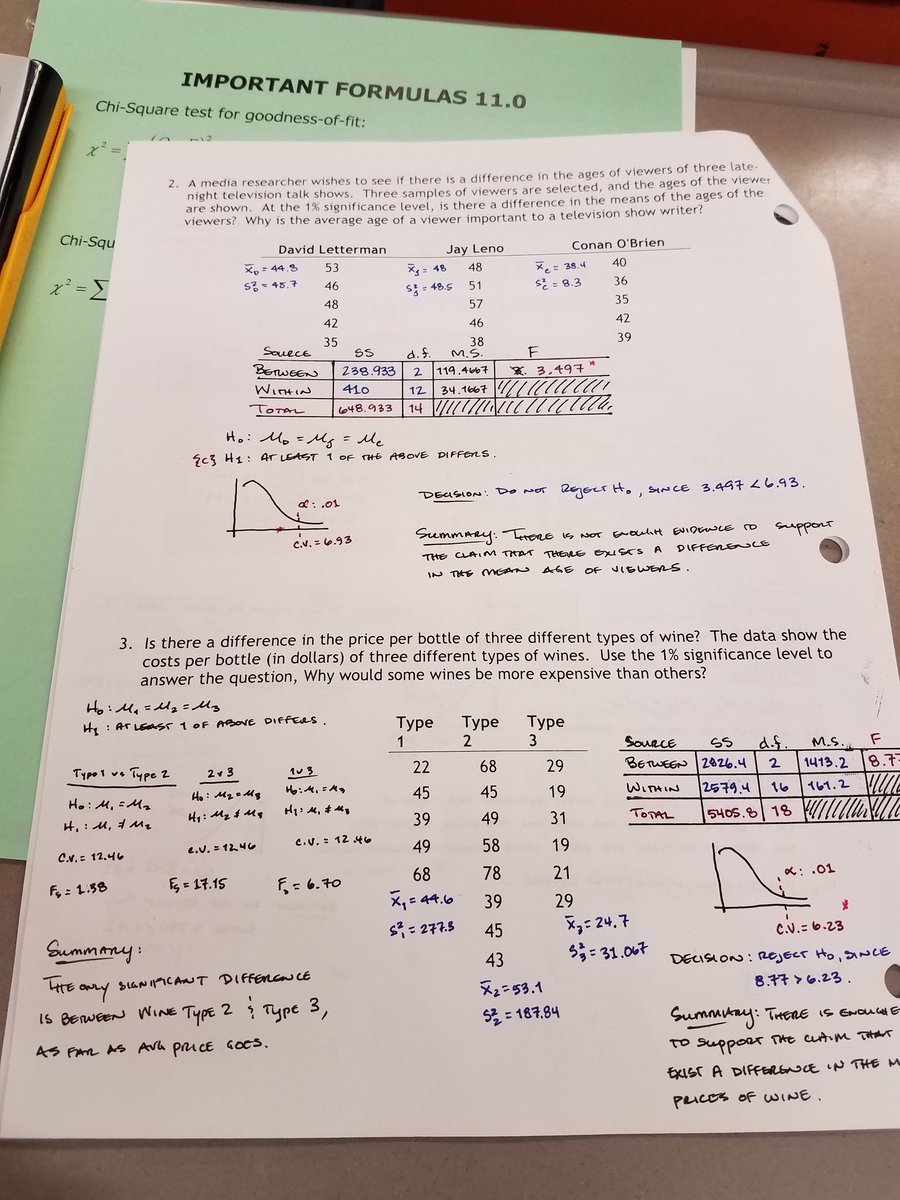 IMPORTANT FORMULAS 11.0
Chi-Square test for goodness-of-fit:
χ² =
Chi-Squ
χ² = ∑
2. A media researcher wishes to see if there is a difference in the ages of viewers of three late-
night television talk shows. Three samples of viewers are selected, and the ages of the viewer
are shown. At the 1% significance level, is there a difference in the means of the ages of the
viewers? Why is the average age of a viewer important to a television show writer?
David Letterman Jay Leno Conan O'Brien
X̄D = 44.8 53 X̄J = 48 48 X̄C = 38.4 40
S²D = 45.7 46 S²J = 48.5 51 S²C = 8.3 36
48 57 35
42 46 42
35 38 39
SOURCE SS d.f. M.S. F
BETWEEN 238.933 2 119.4667 3.497 *
WITHIN 410 12 34.1667
TOTAL 648.933 14
H₀: μD = μJ = μC
{C} H1: AT LEAST 1 OF THE ABOVE DIFFERS.
α: .01
C.V. = 6.93
DECISION: DO NOT REJECT H₀, SINCE 3.497 < 6.93.
SUMMARY: THERE IS NOT ENOUGH EVIDENCE TO SUPPORT
THE CLAIM THAT THERE EXISTS A DIFFERENCE
IN THE MEAN AGE OF VIEWERS.
3. Is there a difference in the price per bottle of three different types of wine? The data show the
costs per bottle (in dollars) of three different types of wines. Use the 1% significance level to
answer the question, Why would some wines be more expensive than others?
H₀: μ₁ = μ₂ = μ₃
H₁: AT LEAST 1 OF ABOVE DIFFERS.
Type 1 vs Type 2
H₀: μ₁ = μ₂
H₁: μ₁ ≠ μ₂
C.V. = 12.46
Fs = 1.38
2 v 3
H₀: μ₂ = μ₃
H₁: μ₂ ≠ μ₃
C.V. = 12.46
Fs = 17.15
1 v 3
H₀: μ₁ = μ₃
H₁: μ₁ ≠ μ₃
C.V. = 12.46
Fs = 6.70
SUMMARY:
THE ONLY SIGNIFICANT DIFFERENCE
IS BETWEEN WINE TYPE 2 & TYPE 3,
AS FAR AS AVG PRICE GOES.
Type Type Type
1 2 3
22 68 29
45 45 19
39 49 31
49 58 19
68 78 21
X̄₁ = 44.6 39 29
S²₁ = 277.3 45 X̄₃ = 24.7
43 S²₃ = 31.067
X̄₂ = 53.1
S²₂ = 187.84
SOURCE SS d.f. M.S. F
BETWEEN 2826.4 2 1413.2 8.77
WITHIN 2579.4 16 161.2
TOTAL 5405.8 18
α: .01
*
C.V. = 6.23
DECISION: REJECT H₀, SINCE
8.77 > 6.23.
SUMMARY: THERE IS ENOUGH E
TO SUPPORT THE CLAIM THAT
EXIST A DIFFERENCE IN THE M
PRICES OF WINE.